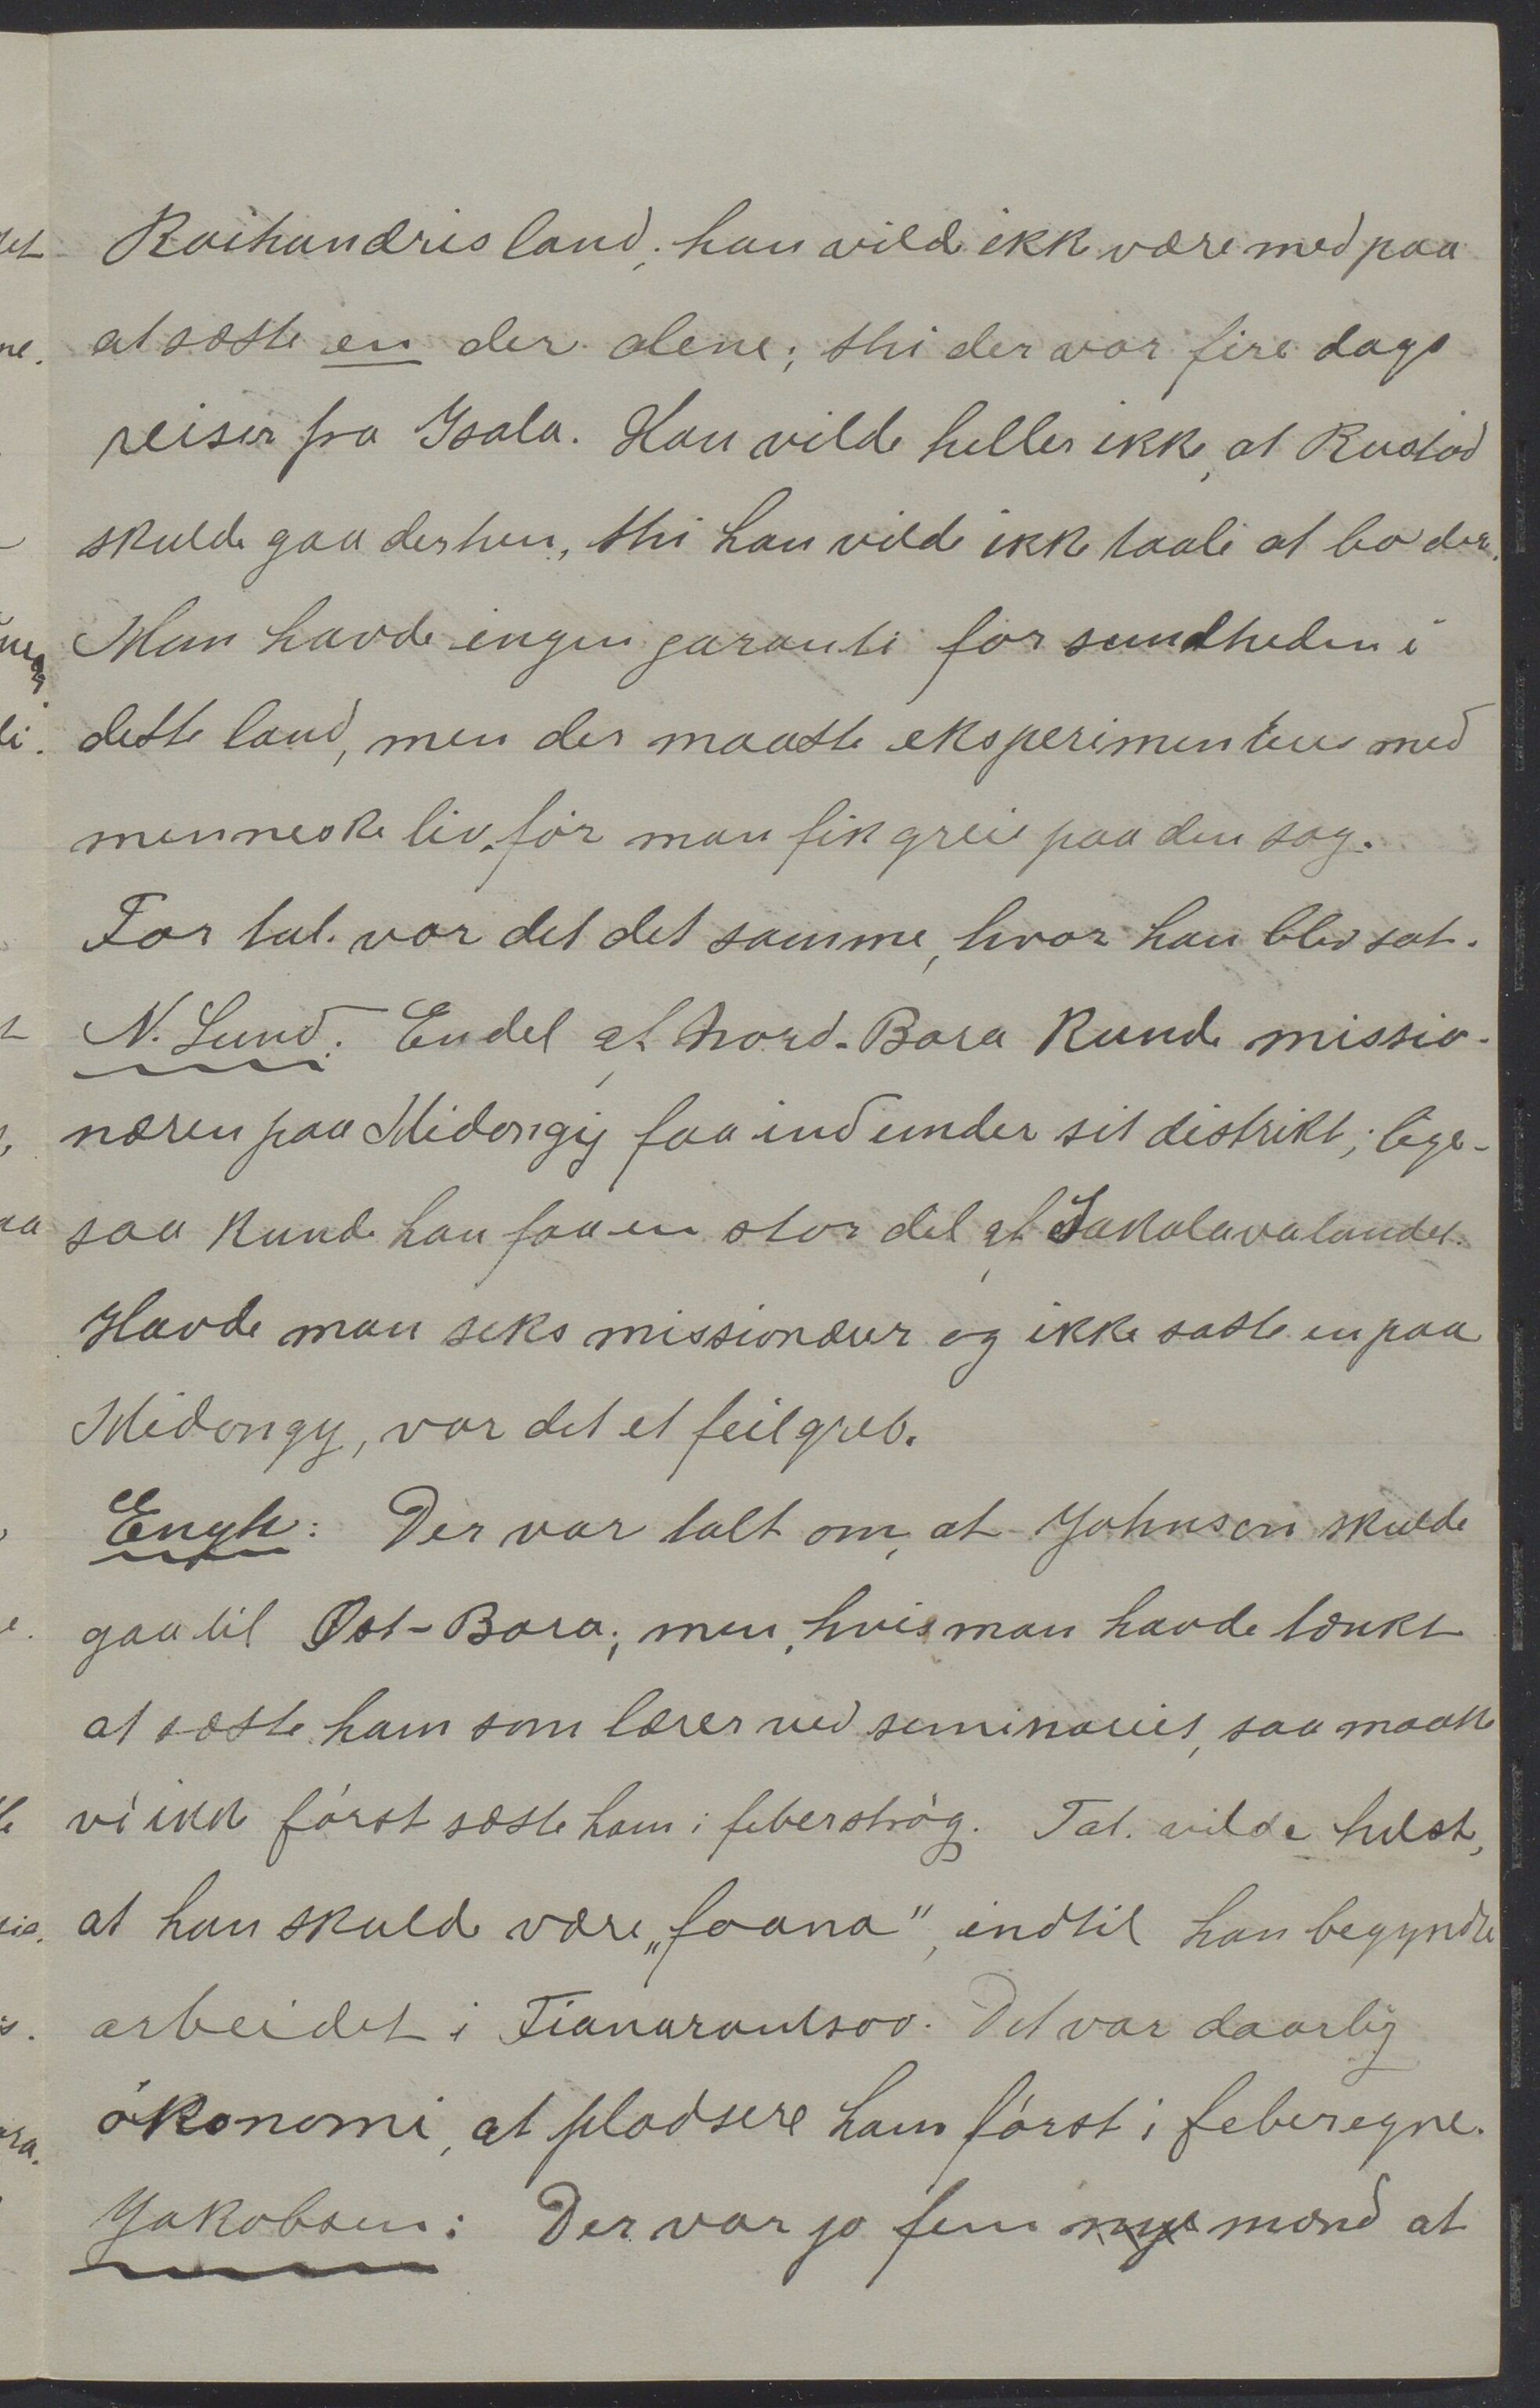 Raihandris land; han vilde ikke være med paa
at sætte en der alene; thi der var fire dags
reiser fra Isala. Han vilde heller ikke, at Rustad
skulde gaa derhen, thi han vilde ikke taale at bo der.
Man havde ingen garanti for sundheden i
dette land, men der maatte eksperimenteres med
menneskeliv, før man fik greie paa den sag.
For tal. var det det samme, hvor han blev sat.
N. Lund. En del af Nord-Bara kunde missio-
næren paa Midongy faa ind under sit distrikt; lige-
saa kunde han faa en stor del af Sakalavalandet.
Havde man seks missionærer og ikke satte en paa
Midongy, var det et feilgreb.
Engh: Der var talt om, at Johnson skulde
gaa til Øst-Bara; men, hvis man havde tænkt
at sætte ham som lærer ved seminariet, saa maatte
vi ikke først sætte ham i feberstrøg. Tal. vilde helst,
at han skulde være „foana", indtil han begyndte
arbeidet i Fianarantsoa. Det var daarlig
økonomi, at pladsere ham først i feberegne.
Jakobsen: Der var jo fem nye mænd at